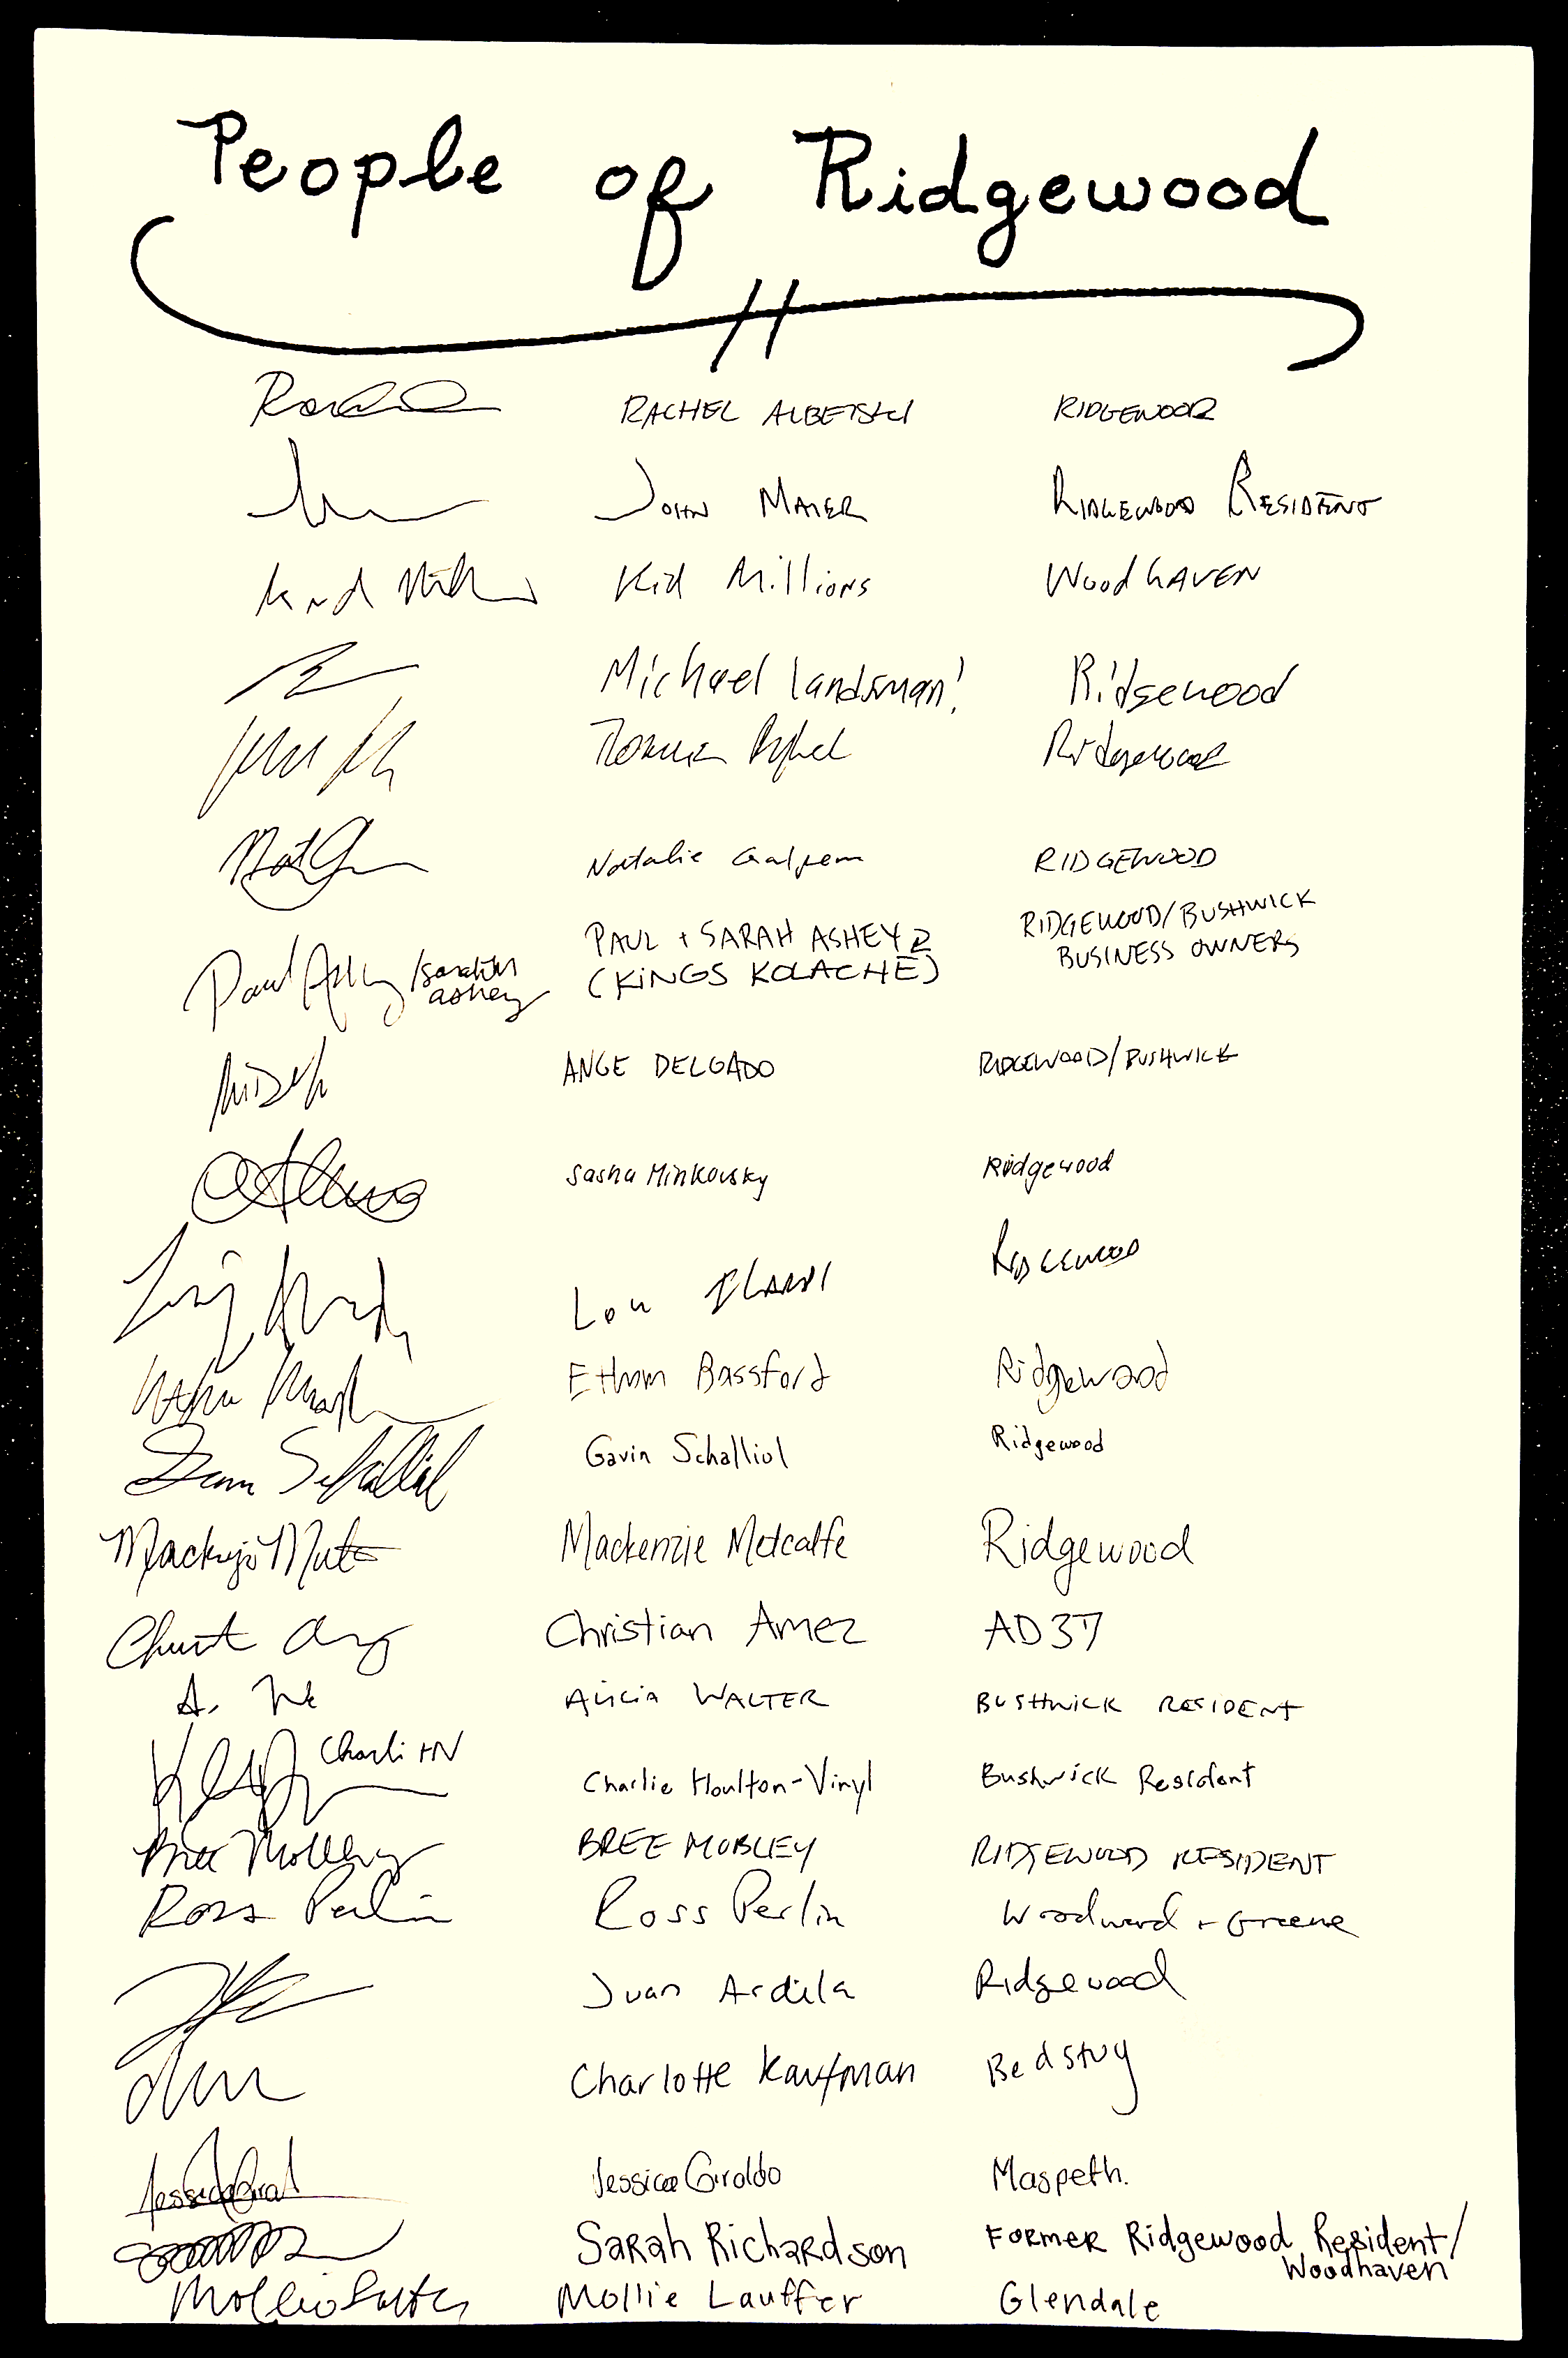 People of Ridgewood
RACHEL ALBETSKI RIDGEWOOD
JOHN MAIER RIDGEWOOD RESIDENT
Kid Millions WoodHAVEN
Michael Landsman! Ridgewood
Ridgewood
Natalie Galpern RIDGEWOOD
PAUL + SARAH ASHEY RIDGEWOOD/BUSHWICK
(KINGS KOLACHE) BUSINESS OWNERS
Paul Ashey/sarah
ashey
ANGE DELGADO RIDGEWOOD/BUSHWICK
Sasha Minkovsky Ridgewood
Lou RIDGEWOOD
Ethan Bassford Ridgewood
Gavin Schalliol Ridgewood
Mackenzie Metcalfe Ridgewood
Christian Amez AD37
A. ALICIA WALTER BUSHWICK RESIDENT
Charli HV Charlie Houlton-Vinyl Bushwick Resident
Bree Mobley BREE MOBLEY RIDGEWOOD RESIDENT
Ross Perlin Ross Perlin Woodward + Greene
Juan Ardila Ridgewood
Charlotte Kaufman Bedstuy
Jessica Giraldo Maspeth.
Sarah Richardson Former Ridgewood Resident/
Woodhaven
Mollie Lauffer Glendale